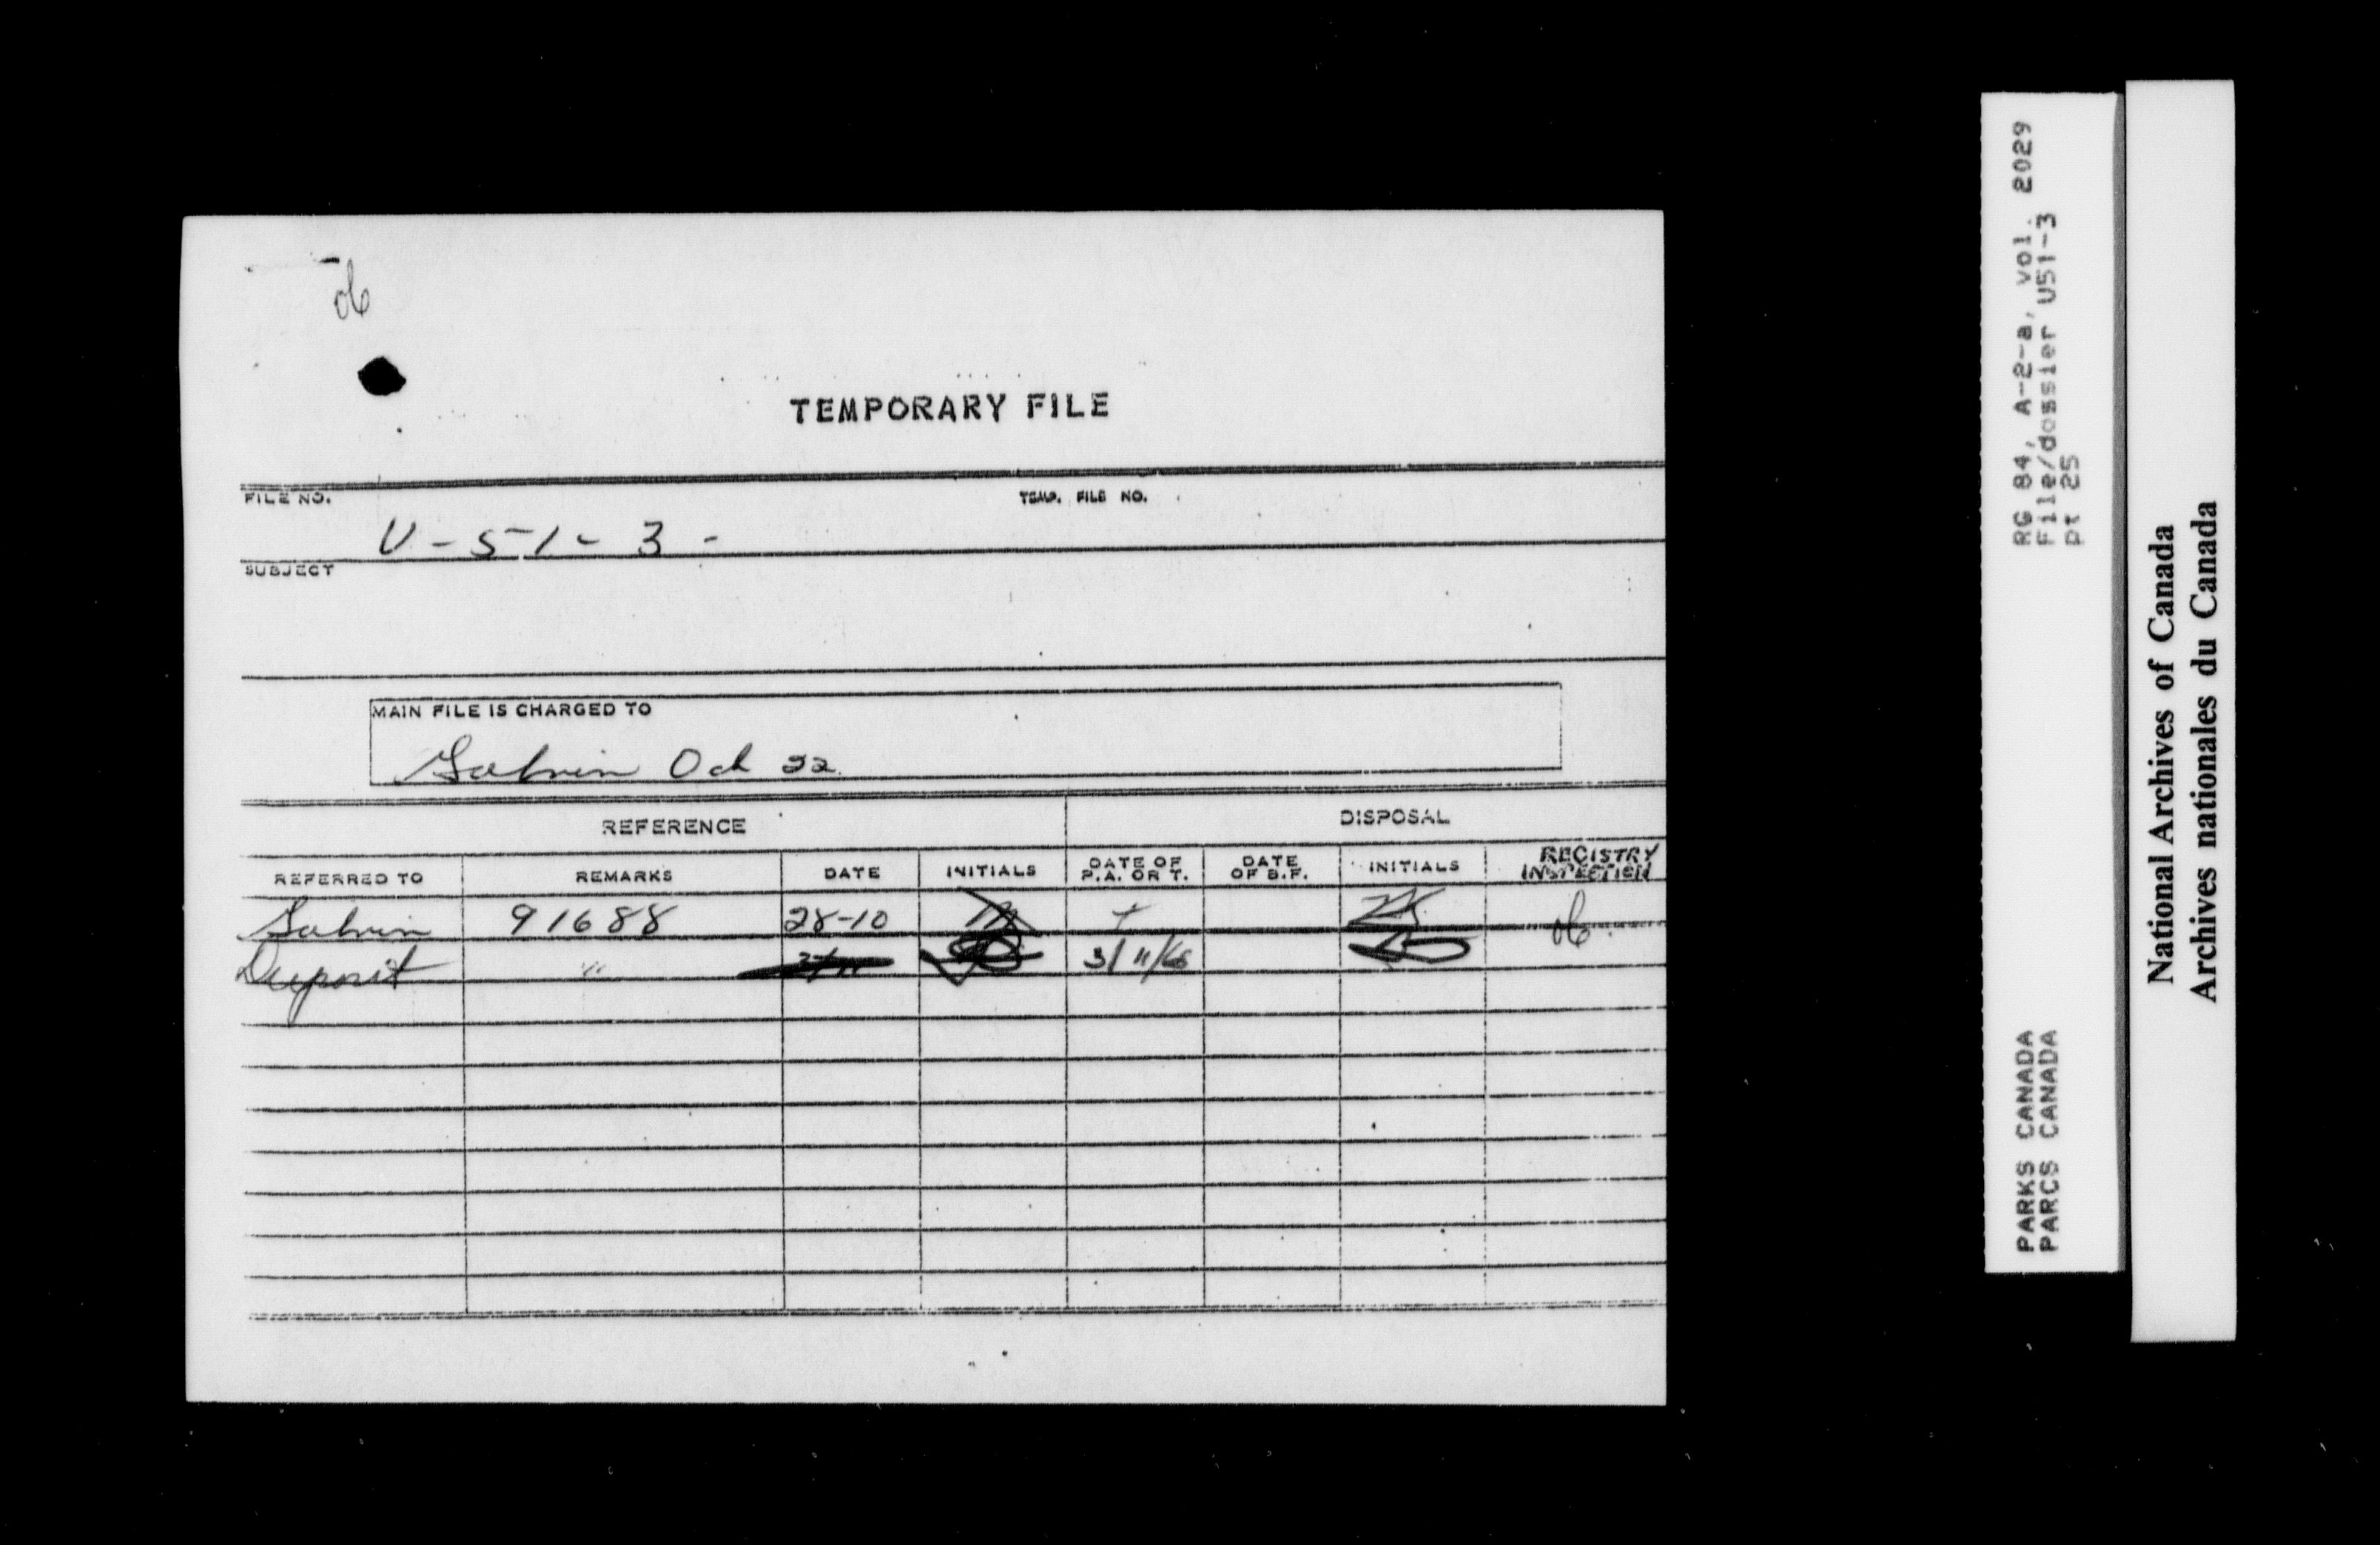 TEMPORARY FILE
FILE NO.
TEMP. FILE NO.
U-51-3-
SUBJECT
MAIN FILE IS CHARGED TO
Oct 22
REFERENCE
DISPOSAL
REFERRED TO
REMARKS
DATE
INITIALS
DATE OF P.A. OR T.
DATE OF B.F.
INITIALS
REGISTRY INSPECTION
91688 28-10
" 3/11/66
RG 84, A-2-a, vol. 2029
File/dossier U51-3
pt 25
PARKS CANADA
PARCS CANADA
National Archives of Canada
Archives nationales du Canada